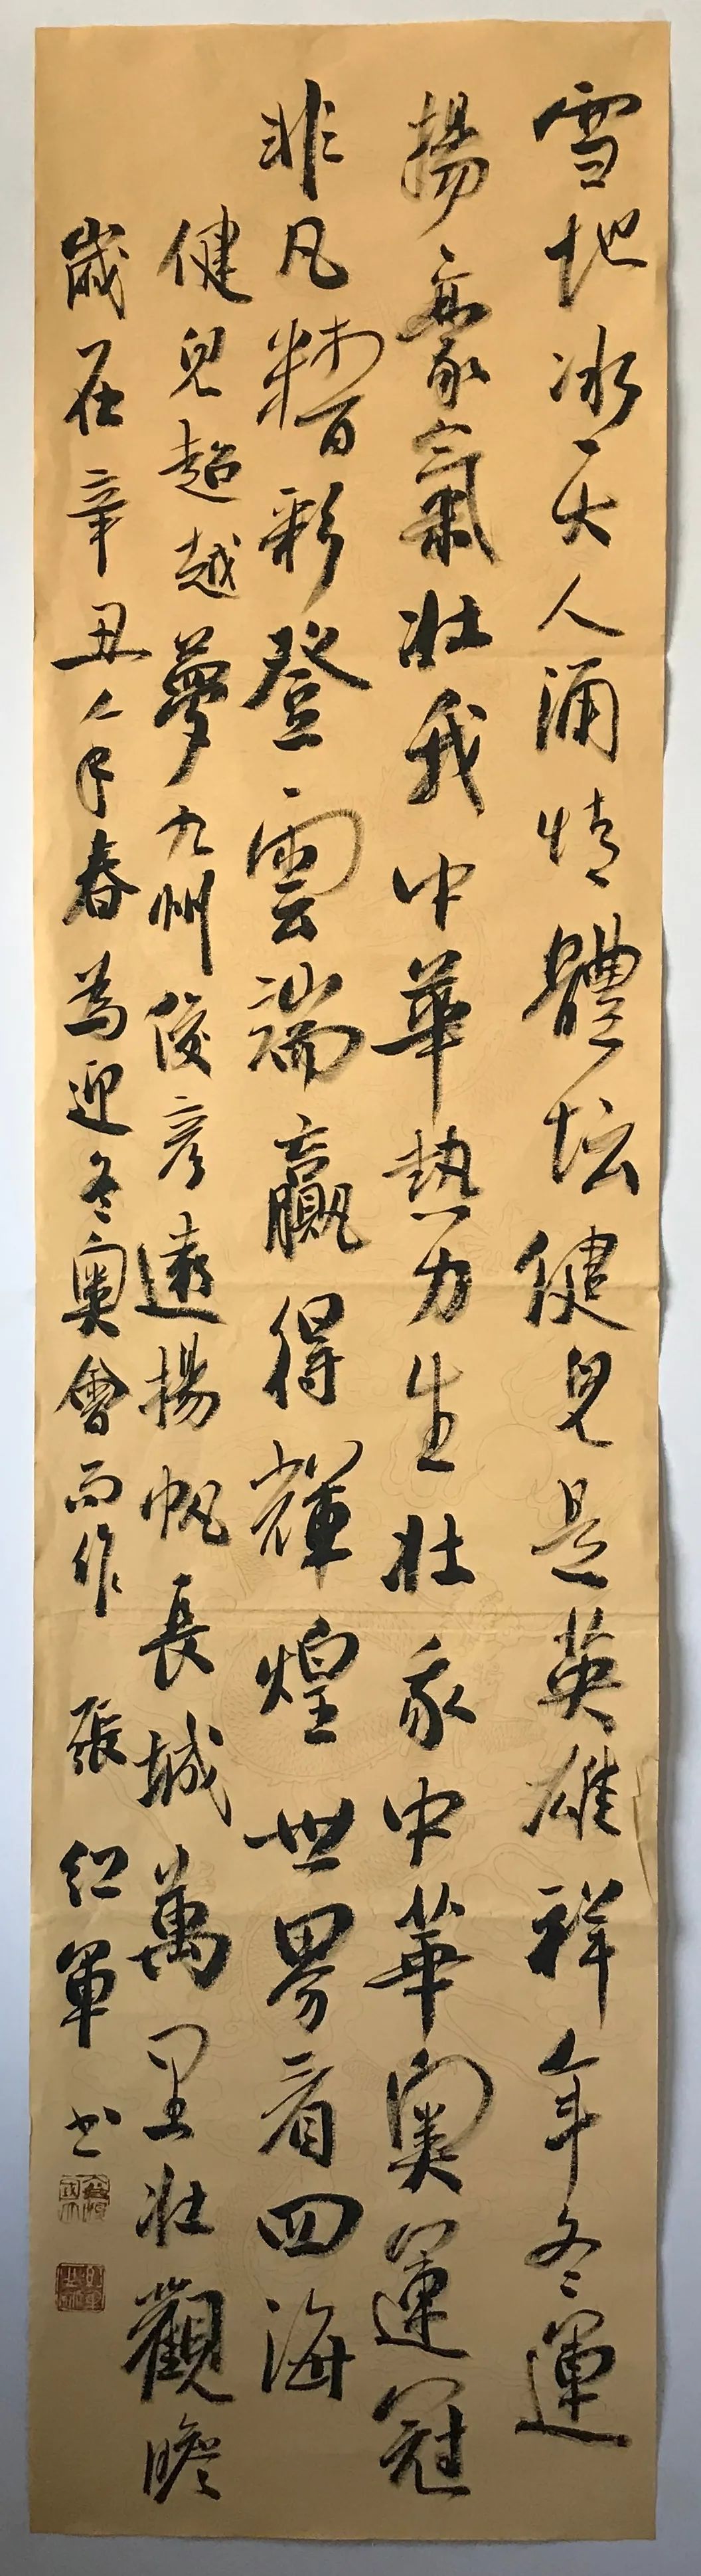 雪地冰天人涌情體坛健兒是英雄祥年冬運
揚豪氣壯我中華熱力生壯我中華奧運冠
非凡精百彩登雲端贏得輝煌世界看四海
健兒超越夢九州俊彦遠揚帆長城萬里壯觀瞻
歲在辛丑年春為迎冬奧會而作 張紅軍书